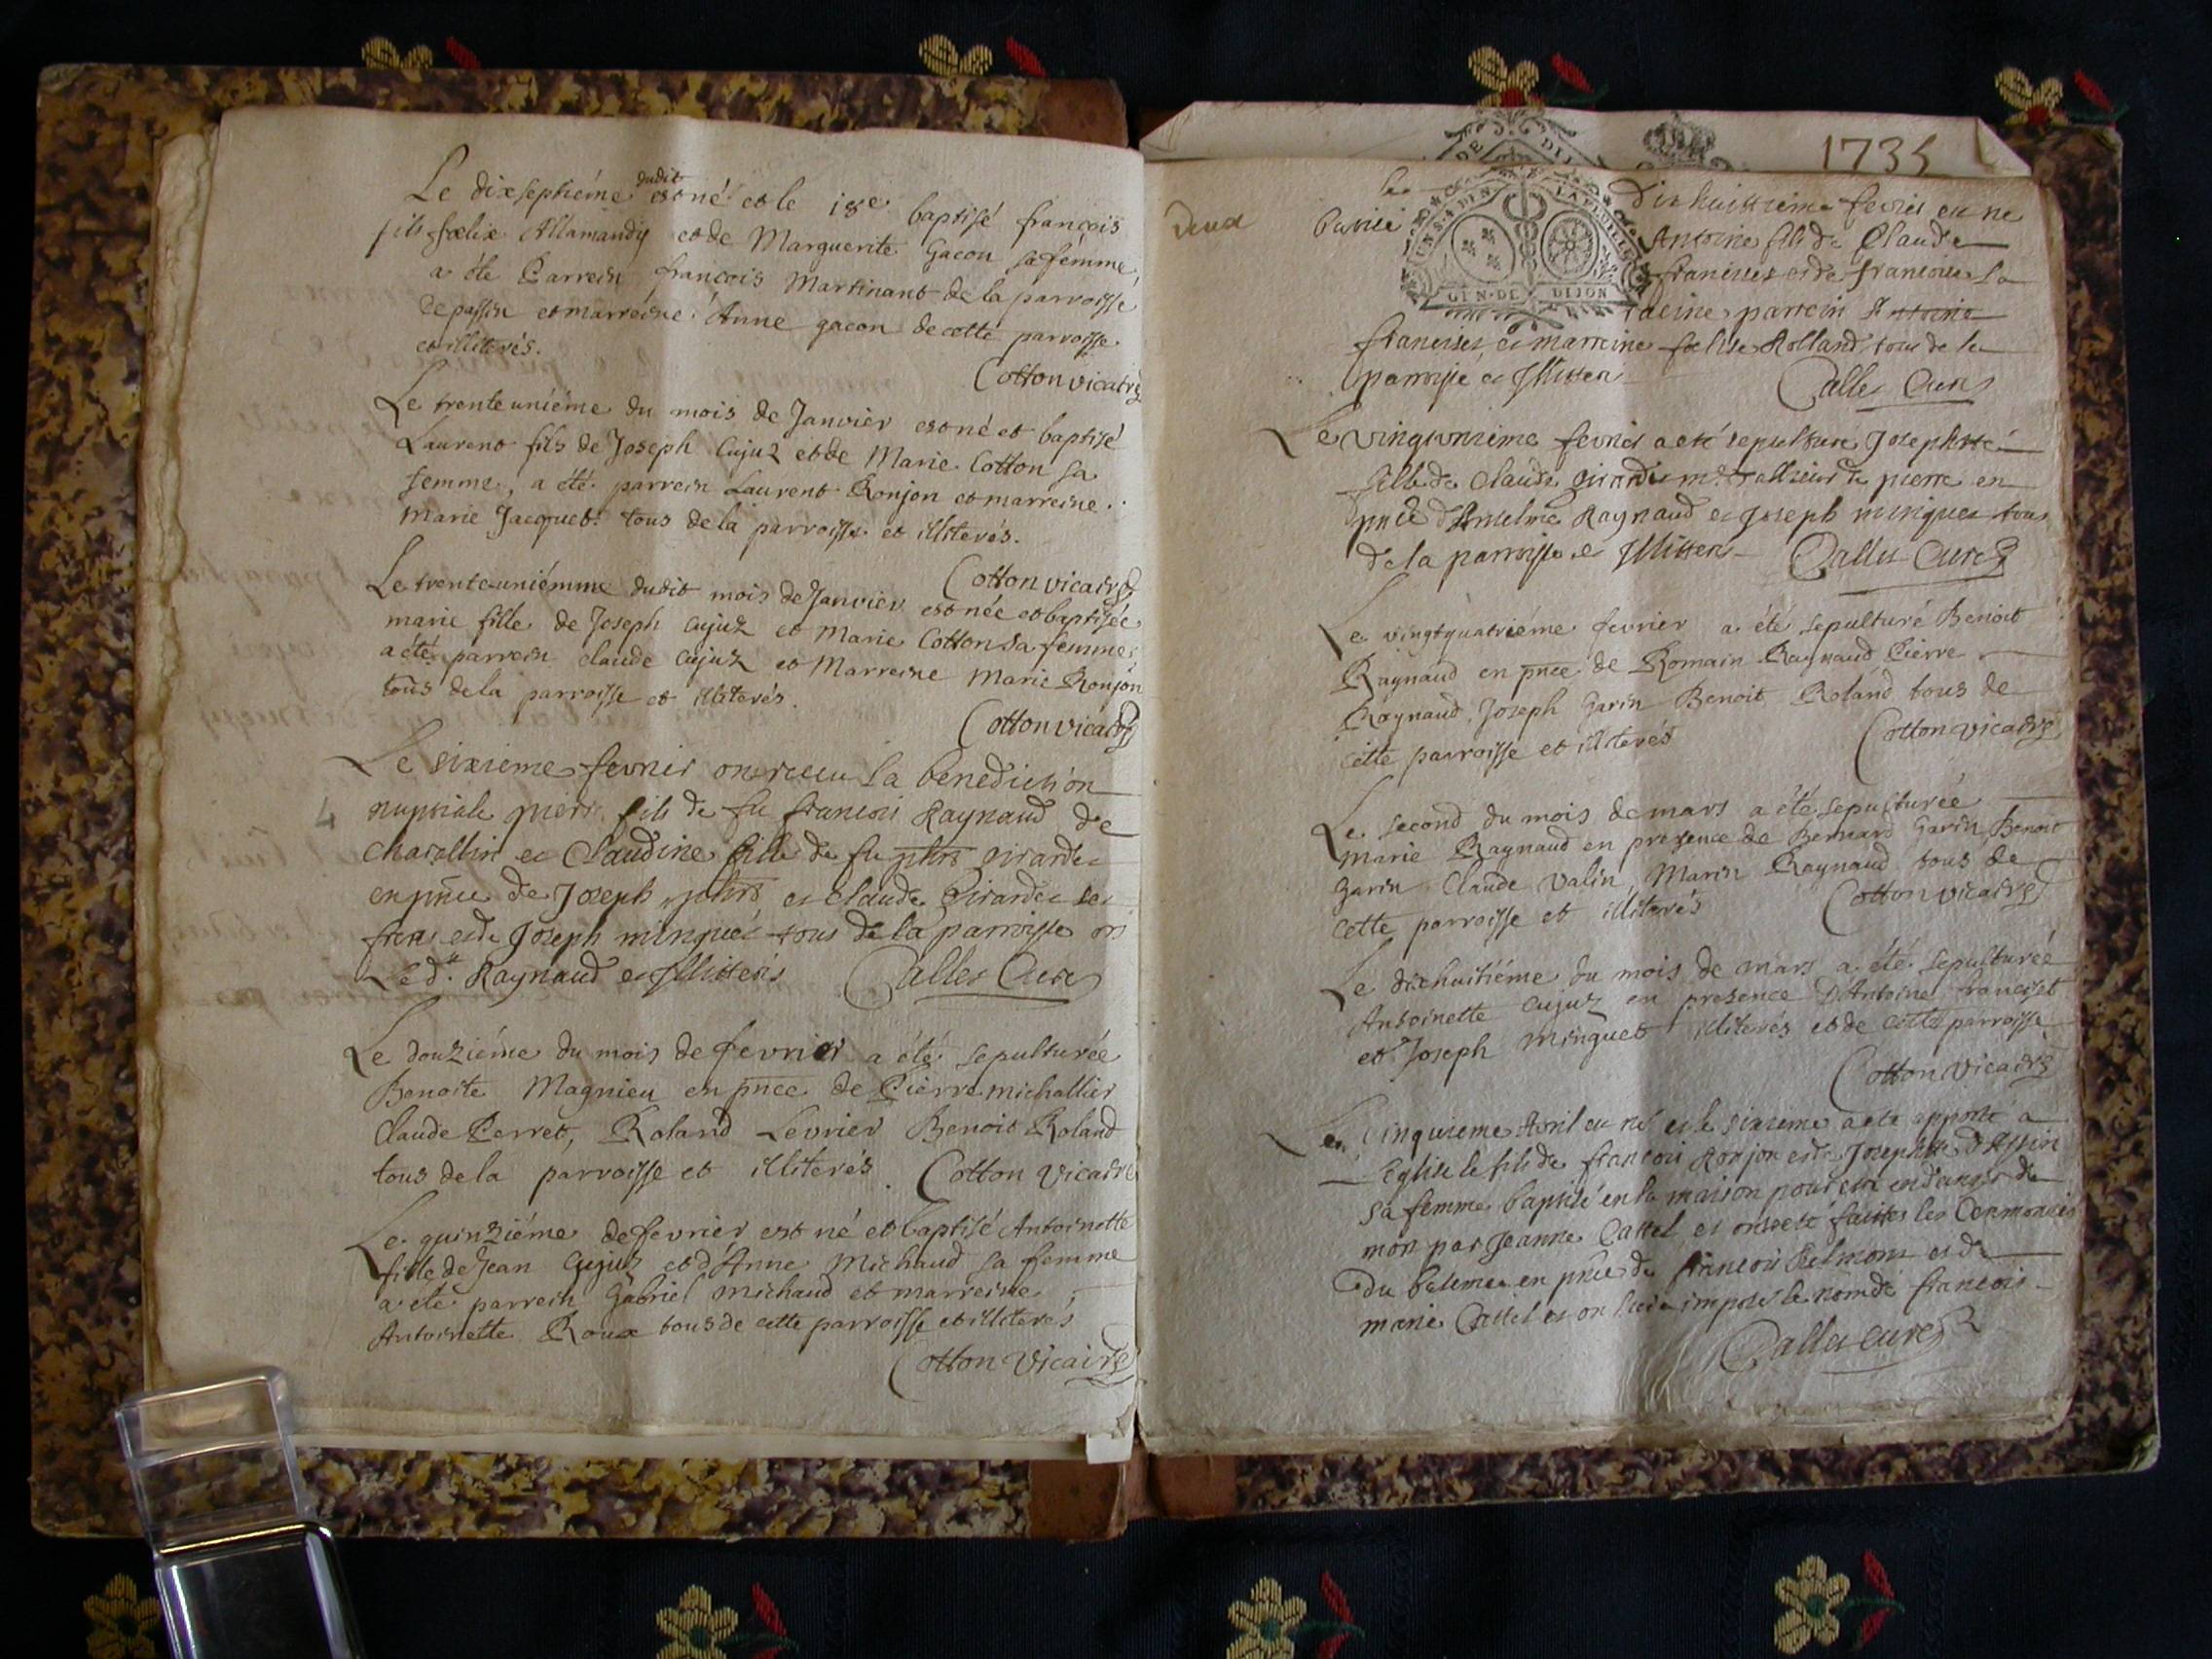 Le dixseptiéme dudit est né et le 18e baptisé françois
fils fœlix Allamandy et de Marguerite Gacon sa femme
a été Parrein françois Martinant de la parroisse
de passin et marreine Anne gacon de cette parroisse
et illiterés.
Cotton vicaire
Le trente uniéme du mois de Janvier est né et baptisé
Laurent fils de Joseph Cujuz et de Marie Cotton sa
femme, a été parrein Laurent Ronjon et marreine
Marie Jacquet tous de la parroisse et illiterés.
Cotton vicaire
Le trente uniémme dudit mois de Janvier est née et baptisée
marie fille de Joseph Cujuz et Marie Cotton sa femme
a été parrein claude Cujuz et Marreine Marie Ronjon
tous de la parroisse et illiterés.
Cotton vicaire
Le sixieme fevrier ont receu la benediction
nuptiale pierre fils de fu francois Raynaud de
charollin et Claudine fille de fu phts Girardet
en pnce de Joseph phts et claude Girardet ses
freres et de Joseph minguet tous de la parroisse
Le dt Raynaud et Illitterés Callet Curé
4
Le douziéme du mois de fevrier a été sepulturée
Benoite Magnieu en pnce de Pierre michallier
Claude Perret, Roland Levrier Benoit Roland
tous de la parroisse et illiterés. Cotton Vicaire
Le quinziéme de fevrier est né et baptisé Antoinette
fille de Jean Cujuz et d'Anne Michaud sa femme
a été parrein Gabriel michaud et marreine
Antoinette Roux tous de cette parroisse et illiterés
Cotton Vicaire
1735
deux
GEN. DE DIJON
le dix huittieme fevrier est né
baptisé Antoine fils de Claude
francises et de francoise La
racine parrein Antoine
francises et marreine foelise Rolland tous de la
parroisse et Illitterés Callet Curé
Le vingtunieme fevrier a eté sepulturée Josephte
fille de Claude Girardet me taillieur de pierre en
pnce d'Anselme Raynaud et Joseph minguet tous
de la parroisse et Illitterés Callet Curé
Le vingtquatriéme fevrier a été sepulturé Benoit
Raynaud en pnce de Romain Raynaud Pierre
Raynaud Joseph Garin Benoit Roland tous de
cette parroisse et illiterés Cotton vicaire
Le second du mois de mars a été sepulturée
Marie Raynaud en presence de Bernard Garin Benoit
Garin Claude Valin, Marin Raynaud tous de
cette parroisse et illiterés Cotton vicaire
Le dixhuitiéme du mois de mars a été sepulturée
Antoinette Cujuz en presence D'Antoine franciset
et Joseph Minguet illiterés et de cette parroisse
Cotton Vicaire
Le Cinquieme Avril est né et le sixieme a eté apporté a
l'Eglise le fils de francois Ronjon et de Josephte D'Assin
sa femme baptisé en la maison pour etre en danger de
mort par Jeanne Cattel et ont eté faittes les Ceremonies
du bateme en pnce de francois Belmont et de
marie Cattel et on luy a imposé le nom de francois
Callet curé